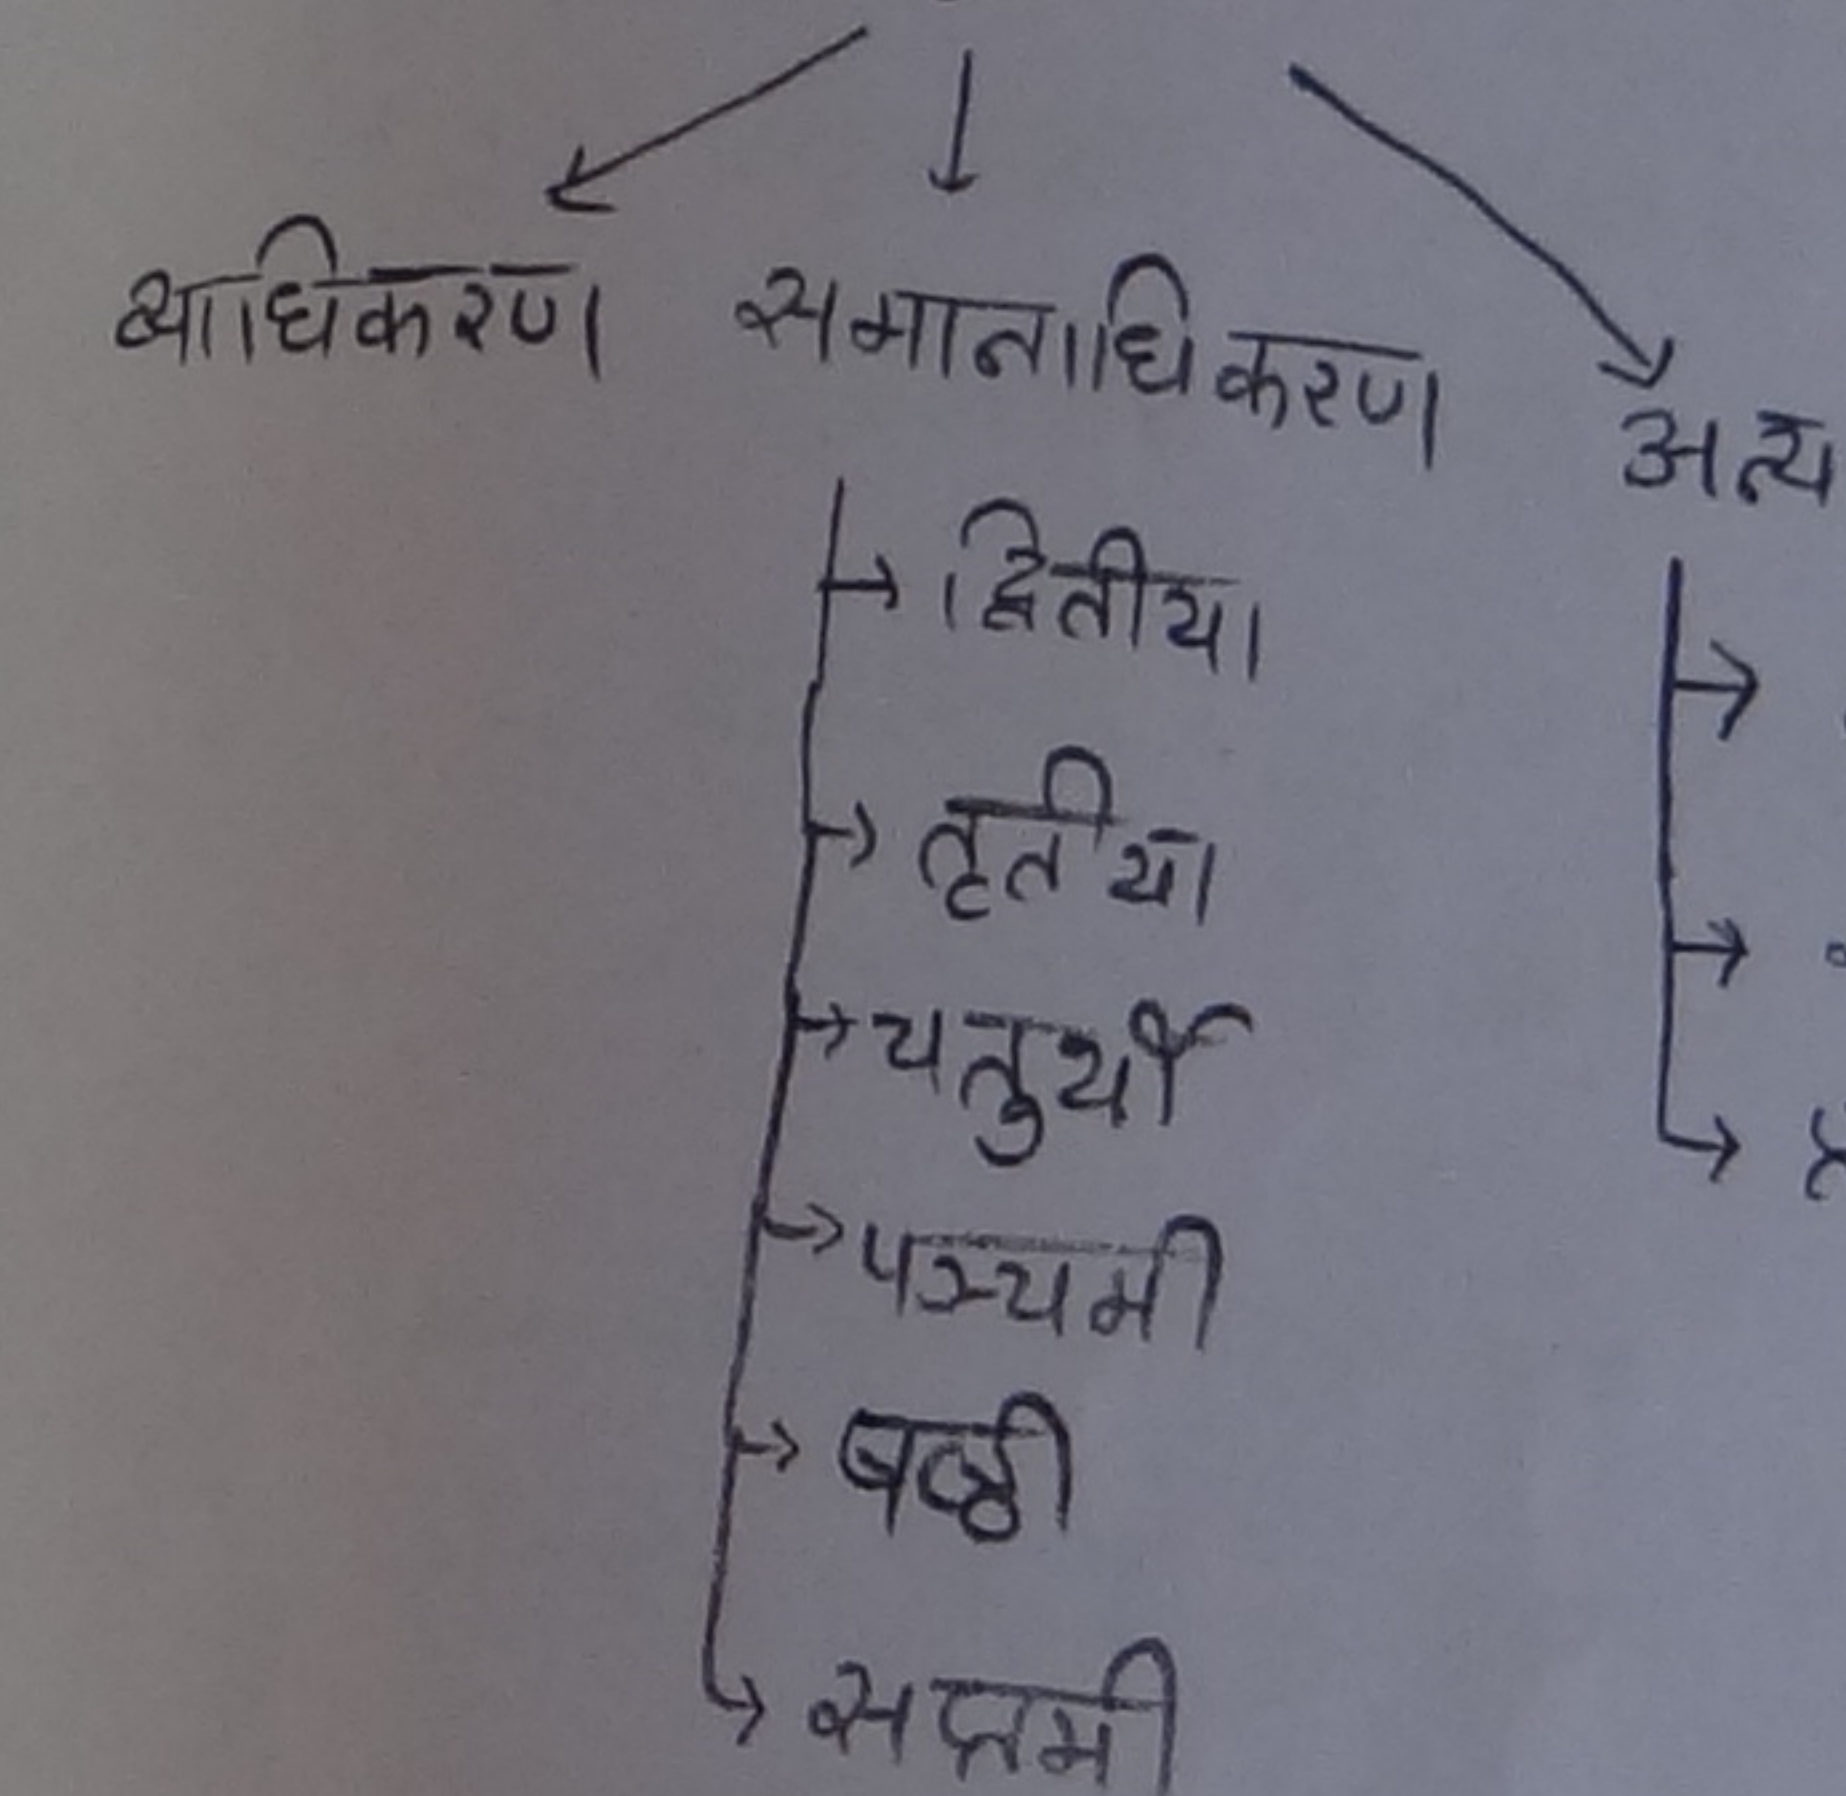 व्याधिकरण समानाधिकरण
अन्य
द्वितीया
तृतीया
चतुर्थी
पञ्चमी
षष्ठी
सप्तमी